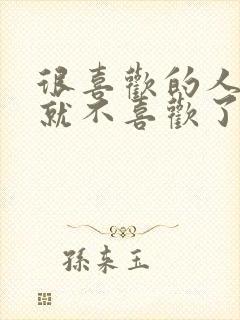 很喜歡的人
就不喜歡了
孫來玉